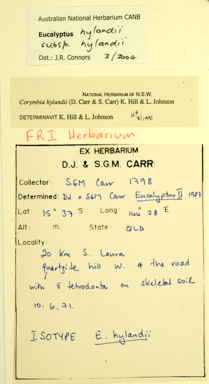 Australian National Herbarium CANB
Eucalyptus hylandii
subsp. hylandii
Det.: J.R. Connors 3/2000
NATIONAL HERBARIUM OF N.S.W.
Corymbia hylandii (D. Carr & S. Carr) K. Hill & L. Johnson
DETERMINAVIT K. Hill & L. Johnson /1991
FRI Herbarium
EX HERBARIUM
D.J. & S.G.M. CARR
Collector: SGM Carr 1798
Determined: DJ & SGM Carr Eucalyptus II 1987
Lat: 15° 37' S Long: 144° 28' E
Alt: m. State: QLD
Locality:
20 km S. Laura
quartzite hill W. of the road
with E tetrodonta on skeletal soil
10. 6. 71.
ISOTYPE E. hylandii